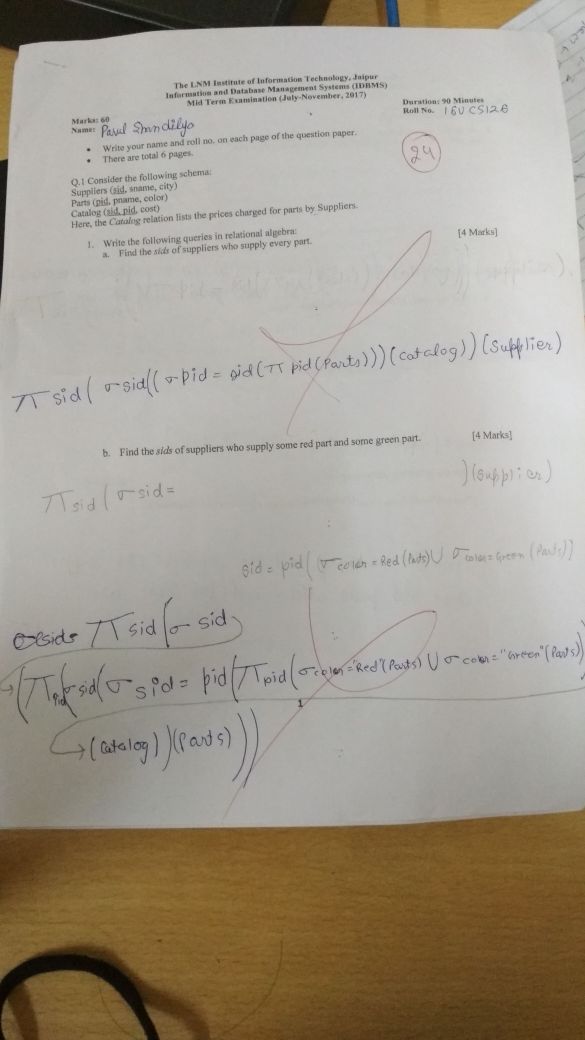 The LNM Institute of Information Technology, Jaipur
Information and Database Management Systems (IDBMS)
Mid Term Examination (July-November, 2017)
Marks: 60
Duration: 90 Minutes
Name:
Roll No.
• Write your name and roll no. on each page of the question paper.
• There are total 6 pages.
24
Q.1 Consider the following schema:
Suppliers (sid, sname, city)
Parts (pid, pname, color)
Catalog (sid, pid, cost)
Here, the Catalog relation lists the prices charged for parts by Suppliers.
1. Write the following queries in relational algebra: [4 Marks]
a. Find the sids of suppliers who supply every part.
π sid ( σ sid (( σ pid = sid (π pid (Parts))) (catalog)) (Supplier)
b. Find the sids of suppliers who supply some red part and some green part. [4 Marks]
π sid ( σ sid = ) (Supplier)
sid = pid ( (σ color = Red (Parts) ∪ σ color = Green (Parts))
π sid ( σ sid
(π pid (σ sid ( σ sid = pid (π pid (σ color = "Red" (Parts) ∪ σ color = "Green" (Parts)
(Catalog) ) (Parts) ))
1